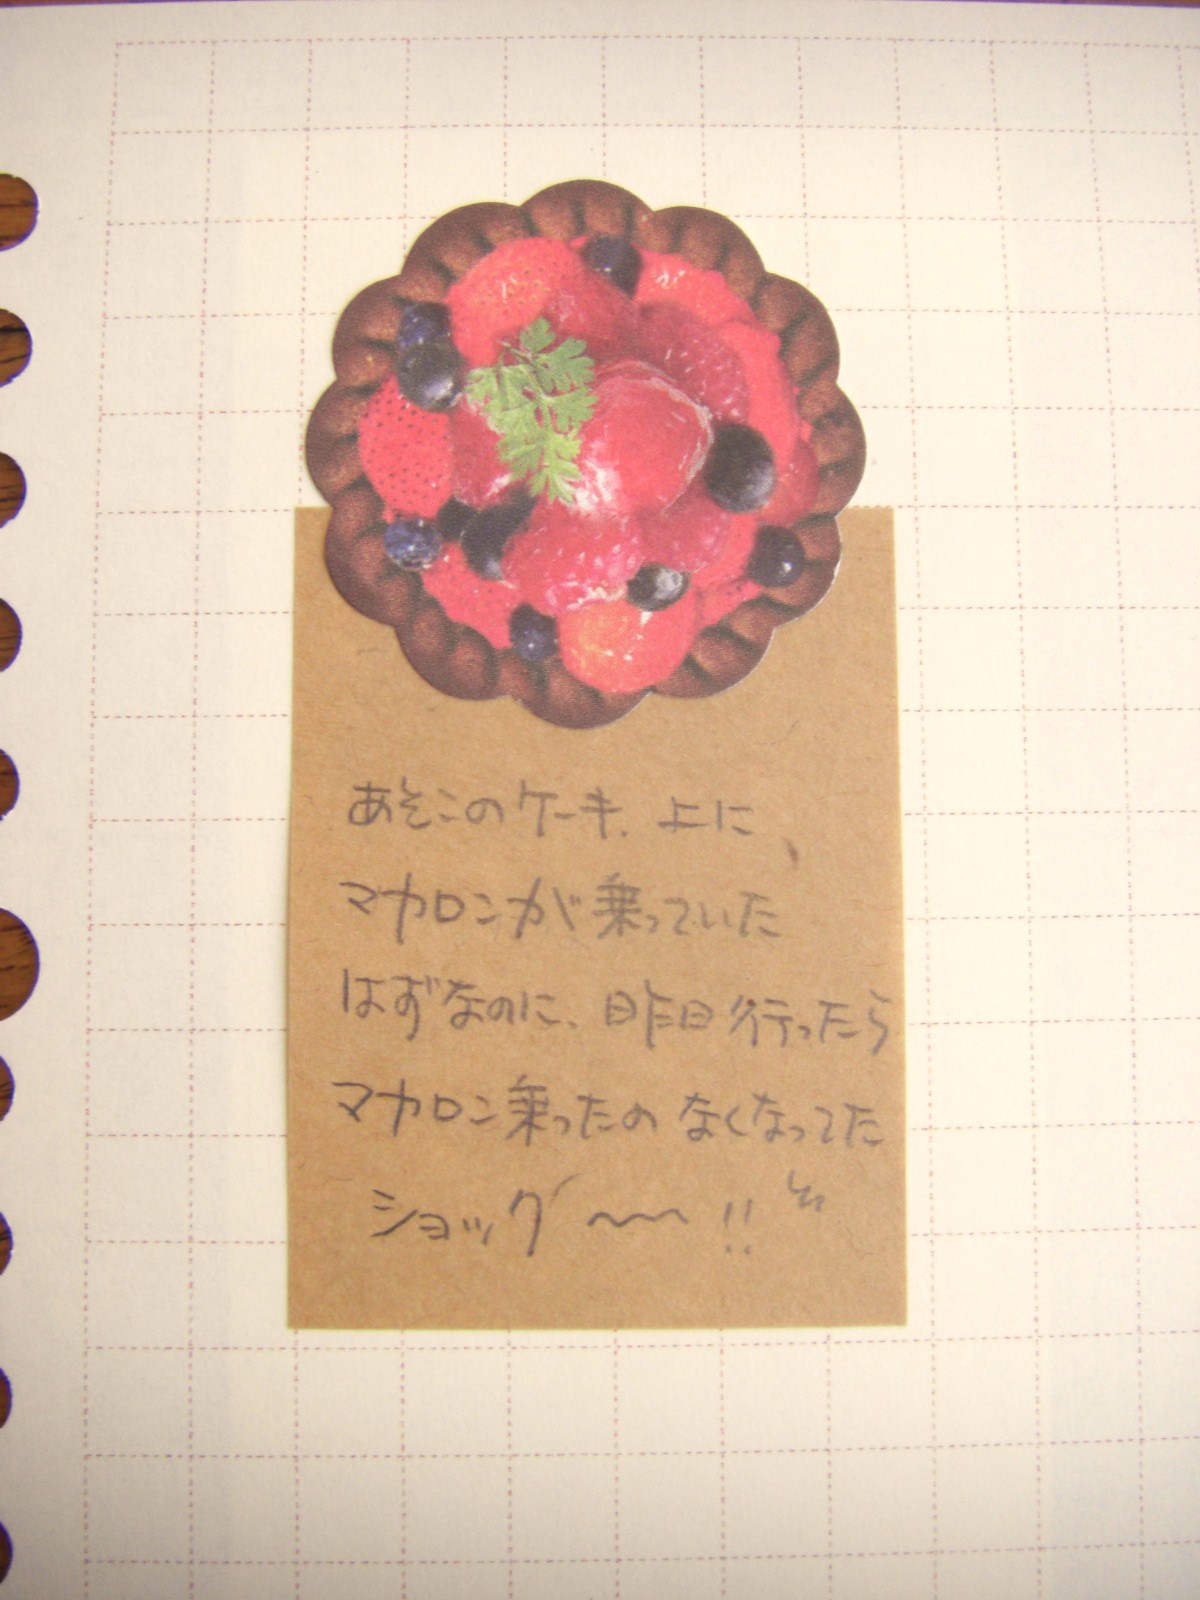 あそこのケーキ、上に
マカロンが乗っていた
はずなのに、昨日行ったら
マカロン乗ったのなくなってた
ショック〜〜!!